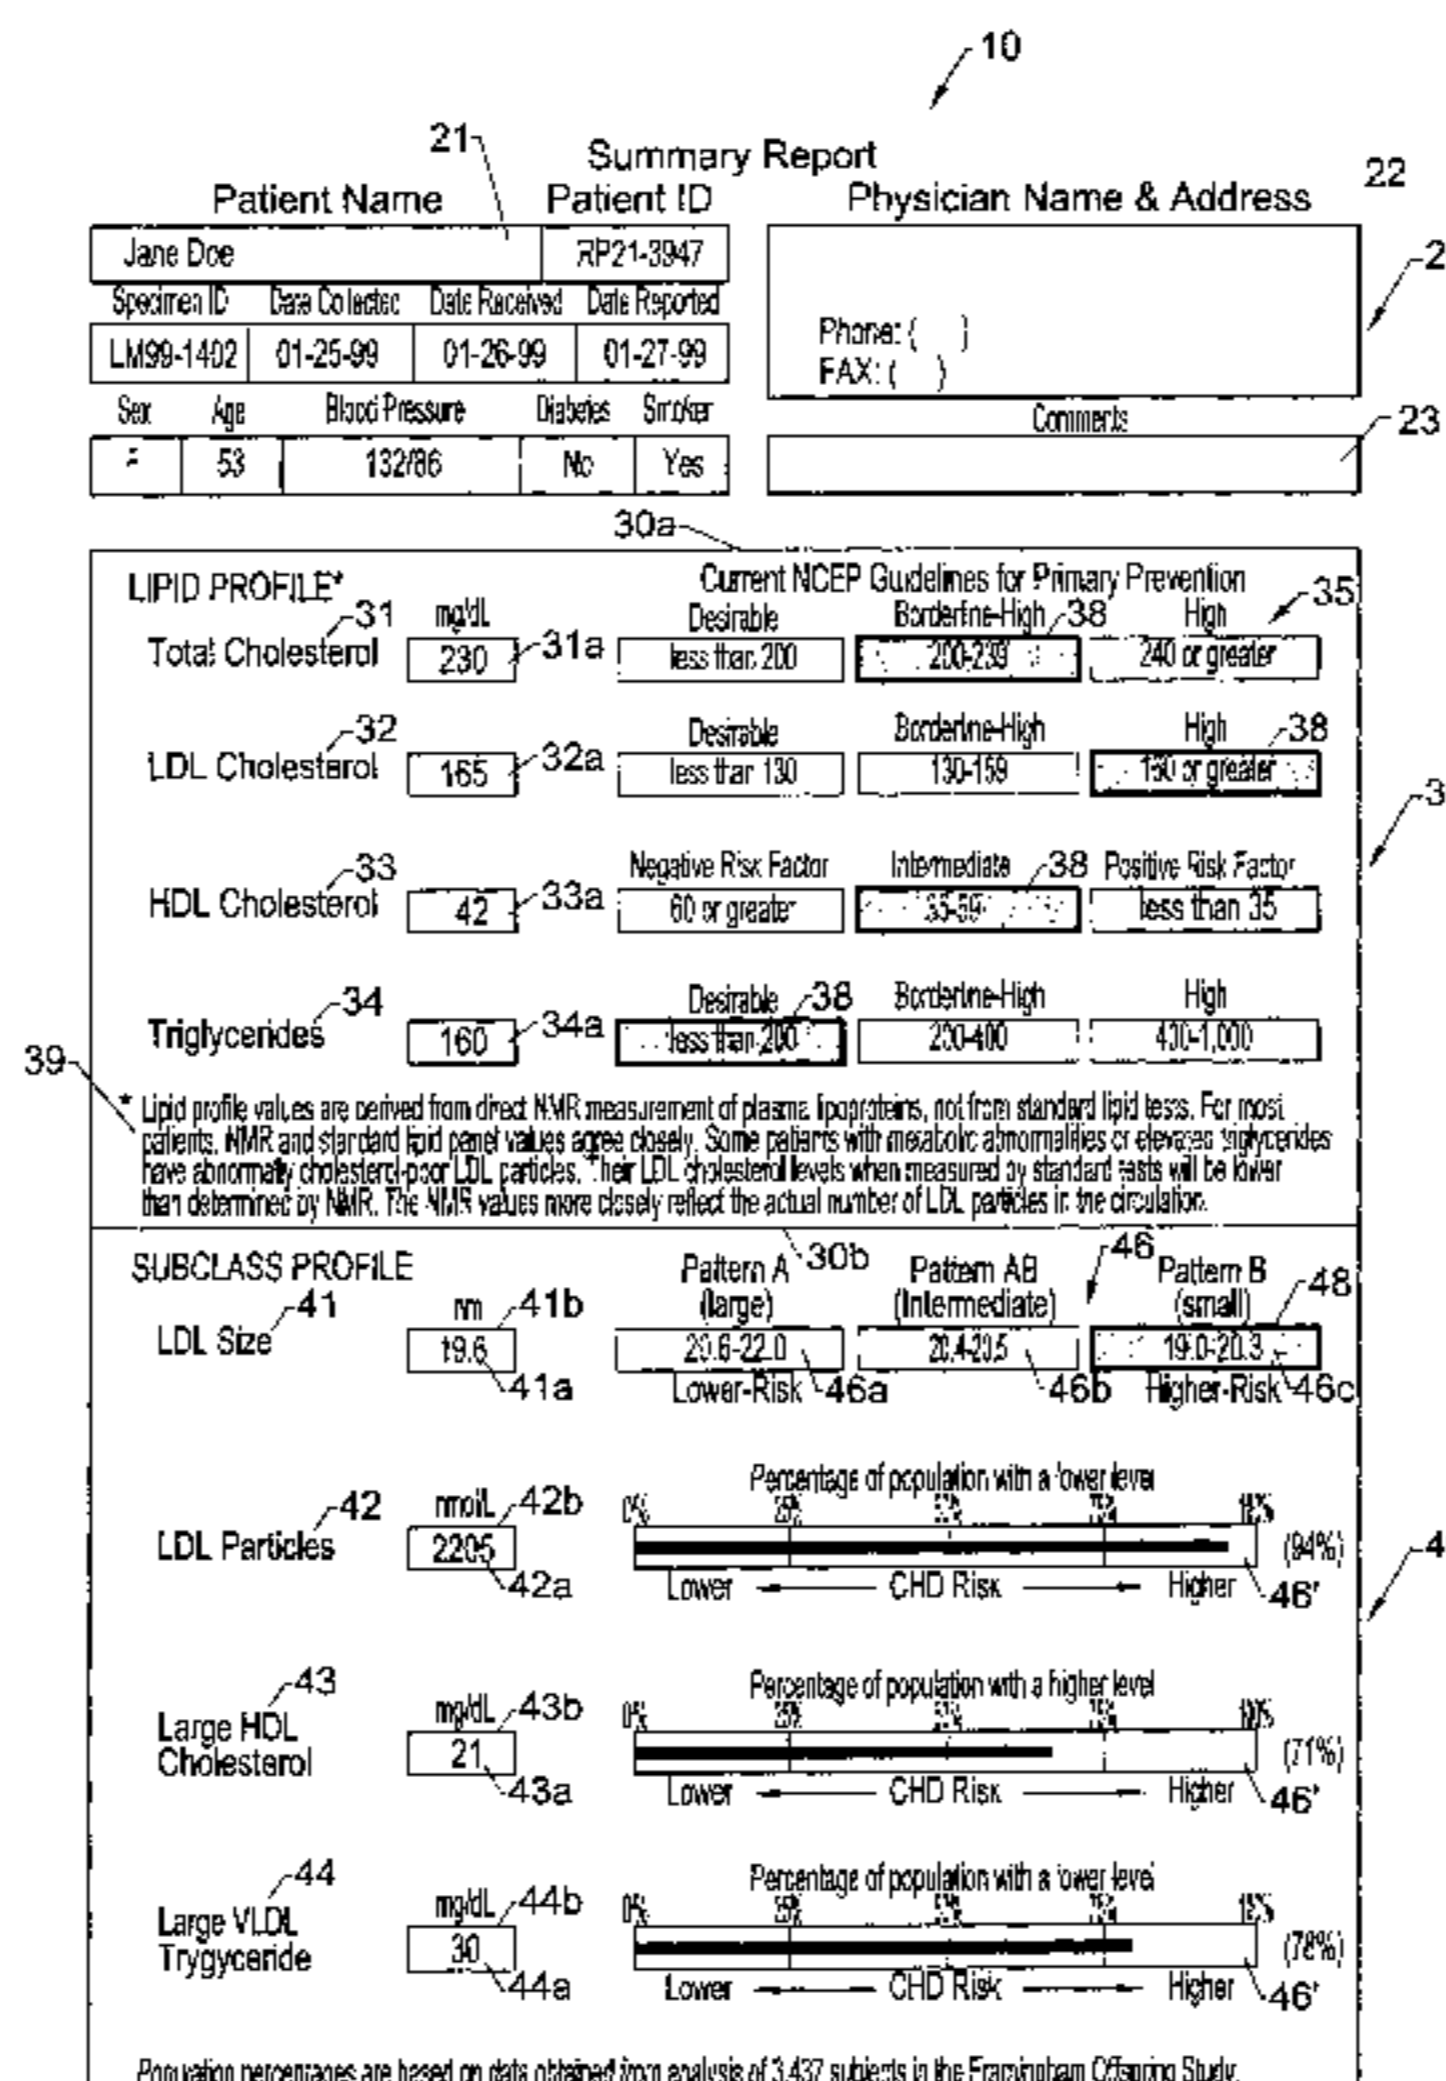 10
21
Summary Report
22
Patient Name Patient ID Physician Name & Address
Jane Doe RP21-3947
2
Specimen ID Date Collected Date Received Date Reported
Phone: ( )
LM99-1402 01-25-99 01-26-99 01-27-99
FAX: ( )
Sex Age Blood Pressure Diabetes Smoker Comments
23
F 53 132/86 No Yes
30a
LIPID PROFILE* Current NCEP Guidelines for Primary Prevention
31 mg/dL Desirable Borderline-High 38 High 35
Total Cholesterol 230 31a less than 200 200-239 240 or greater
32 Desirable Borderline-High High 38
LDL Cholesterol 165 32a less than 130 130-159 160 or greater
3
33 Negative Risk Factor Intermediate 38 Positive Risk Factor
HDL Cholesterol 42 33a 60 or greater 35-59 less than 35
34 Desirable 38 Borderline-High High
Triglycerides 160 34a less than 200 200-400 400-1,000
39
* Lipid profile values are derived from direct NMR measurement of plasma lipoproteins, not from standard lipid tests. For most
patients, NMR and standard lipid panel values agree closely. Some patients with metabolic abnormalities or elevated triglycerides
have abnormally cholesterol-poor LDL particles. Their LDL cholesterol levels when measured by standard tests will be lower
than determined by NMR. The NMR values more closely reflect the actual number of LDL particles in the circulation.
SUBCLASS PROFILE Pattern A 30b Pattern AB 46 Pattern B
41 nm 41b (large) (Intermediate) (small) 48
LDL Size 19.6 20.6-22.0 20.4-20.5 19.0-20.3
41a Lower-Risk 46a 46b Higher-Risk 46c
Percentage of population with a lower level
42 nmol/L 42b 0% 25% 50% 75% 100%
LDL Particles 2205 (94%)
4
42a Lower CHD Risk Higher 46'
43 Percentage of population with a higher level
mg/dL 43b 0% 25% 50% 75% 100%
Large HDL
Cholesterol 21 (71%)
43a Lower CHD Risk Higher 46'
44 Percentage of population with a lower level
mg/dL 44b 0% 25% 50% 75% 100%
Large VLDL
Trygyceride 30 (78%)
44a Lower CHD Risk Higher 46'
Population percentages are based on data obtained from analysis of 3,437 subjects in the Framingham Offspring Study.